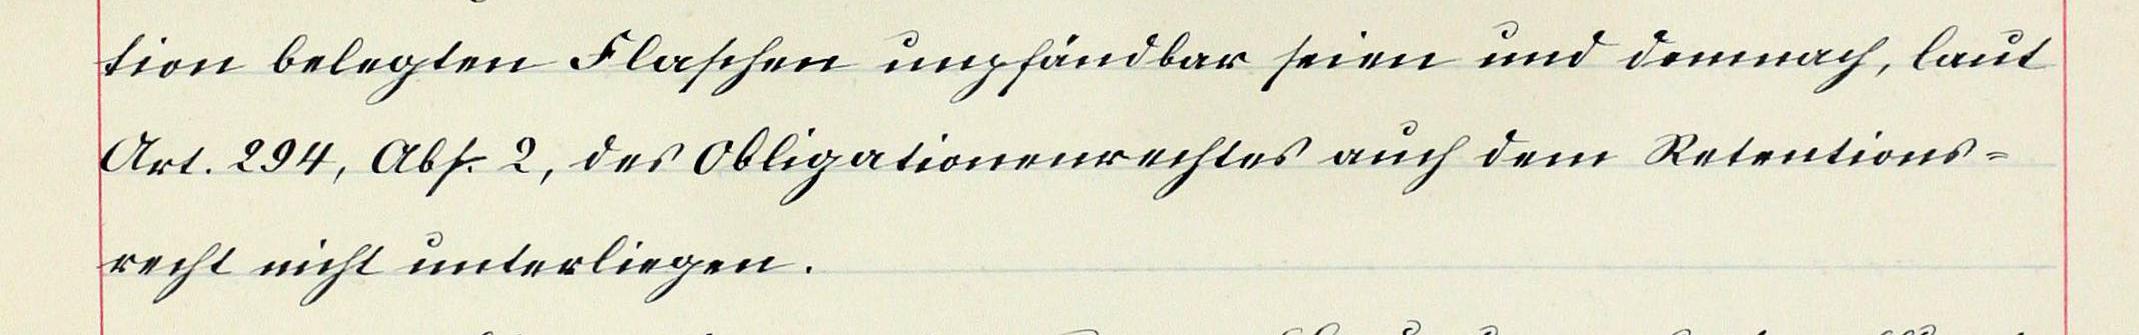 tion belegten Flaschen unpfändbar seien und demnach, laut
Art. 294, Abs. 2, des Obligationenrechtes auch dem Retentions-
recht nicht unterliegen.